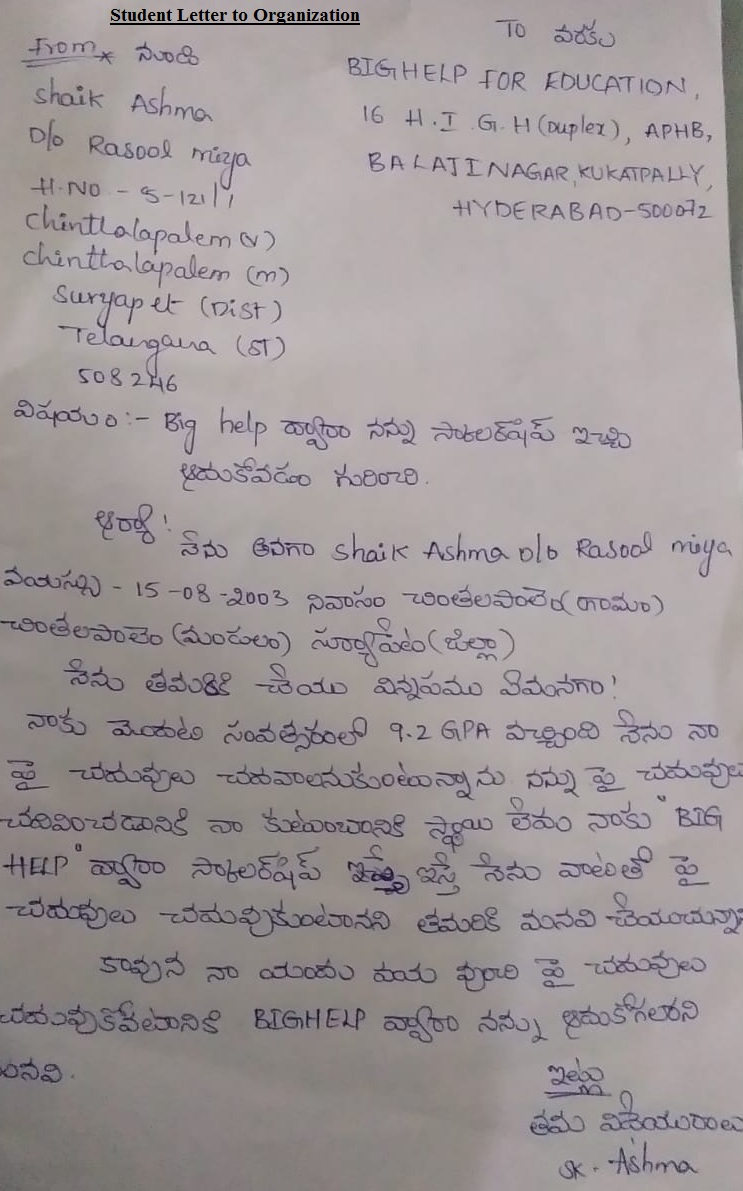 Student Letter to Organization
From నుండి
Shaik Ashma
D/o Rasool miya
H.NO - 5-121/1
Chinthalapalem (v)
Chinthalapalem (m)
Suryapet (Dist)
Telangana (ST)
508246
TO వరకు
BIGHELP FOR EDUCATION,
16 H.I.G.H (Duplex), APHB,
BALAJI NAGAR, KUKATPALLY,
HYDERABAD-500072
విషయం :- Big help ద్వారా నన్ను స్కాలర్‌షిప్ ఇచ్చి
ఆదుకోవడం గురించి.
ఆర్యా!
నేను అనగా Shaik Ashma D/o Rasool miya
వయస్సు - 15-08-2003 నివాసం చింతలపాలెం (గ్రామం)
చింతలపాలెం (మండలం) సూర్యాపేట (జిల్లా)
నేను తమరికి చేయు విన్నపము ఏమనగా!
నాకు మొదటి సంవత్సరంలో 9.2 GPA వచ్చింది నేను నా
పై చదువులు చదవాలనుకుంటున్నాను నన్ను పై చదువులు
చదివించడానికి నా కుటుంబానికి స్థాయి లేదు నాకు "BIG
HELP" ద్వారా స్కాలర్‌షిప్ ఇస్తే నేను వాటితో పై
చదువులు చదువుకుంటానని తమరికి మనవి చేయుచున్నా
కావున నా యందు దయ వుంచి పై చదువులు
చదువుకోవటానికి BIGHELP ద్వారా నన్ను ఆదుకోగలరని
మనవి.
ఇట్లు
తమ విధేయురాలు
SK. Ashma